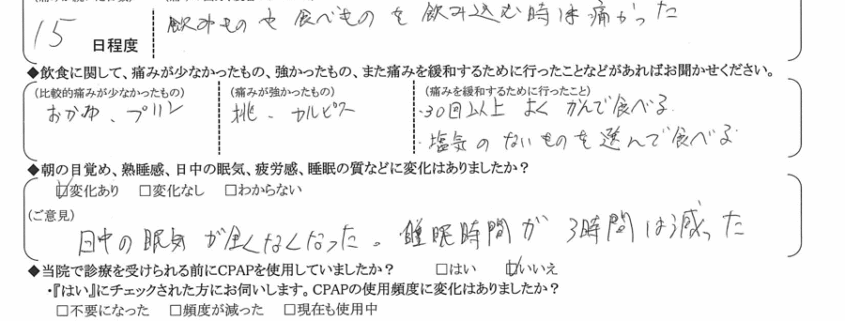 15 日程度
飲みものや食べものを飲み込む時は痛かった
◆飲食に関して、痛みが少なかったもの、強かったもの、また痛みを緩和するために行ったことなどがあればお聞かせください。
(比較的痛みが少なかったもの)
おかゆ、プリン
(痛みが強かったもの)
桃、カルピス
(痛みを緩和するために行ったこと)
・30回以上 よくかんで食べる
・塩気のないものを選んで食べる
◆朝の目覚め、熟睡感、日中の眠気、疲労感、睡眠の質などに変化はありましたか？
☑変化あり □変化なし □わからない
(ご意見)
日中の眠気が全くなくなった。睡眠時間が3時間は減った
◆当院で診療を受けられる前にCPAPを使用していましたか？ □はい ☑いいえ
・『はい』にチェックされた方にお伺いします。CPAPの使用頻度に変化はありましたか？
□不要になった □頻度が減った □現在も使用中